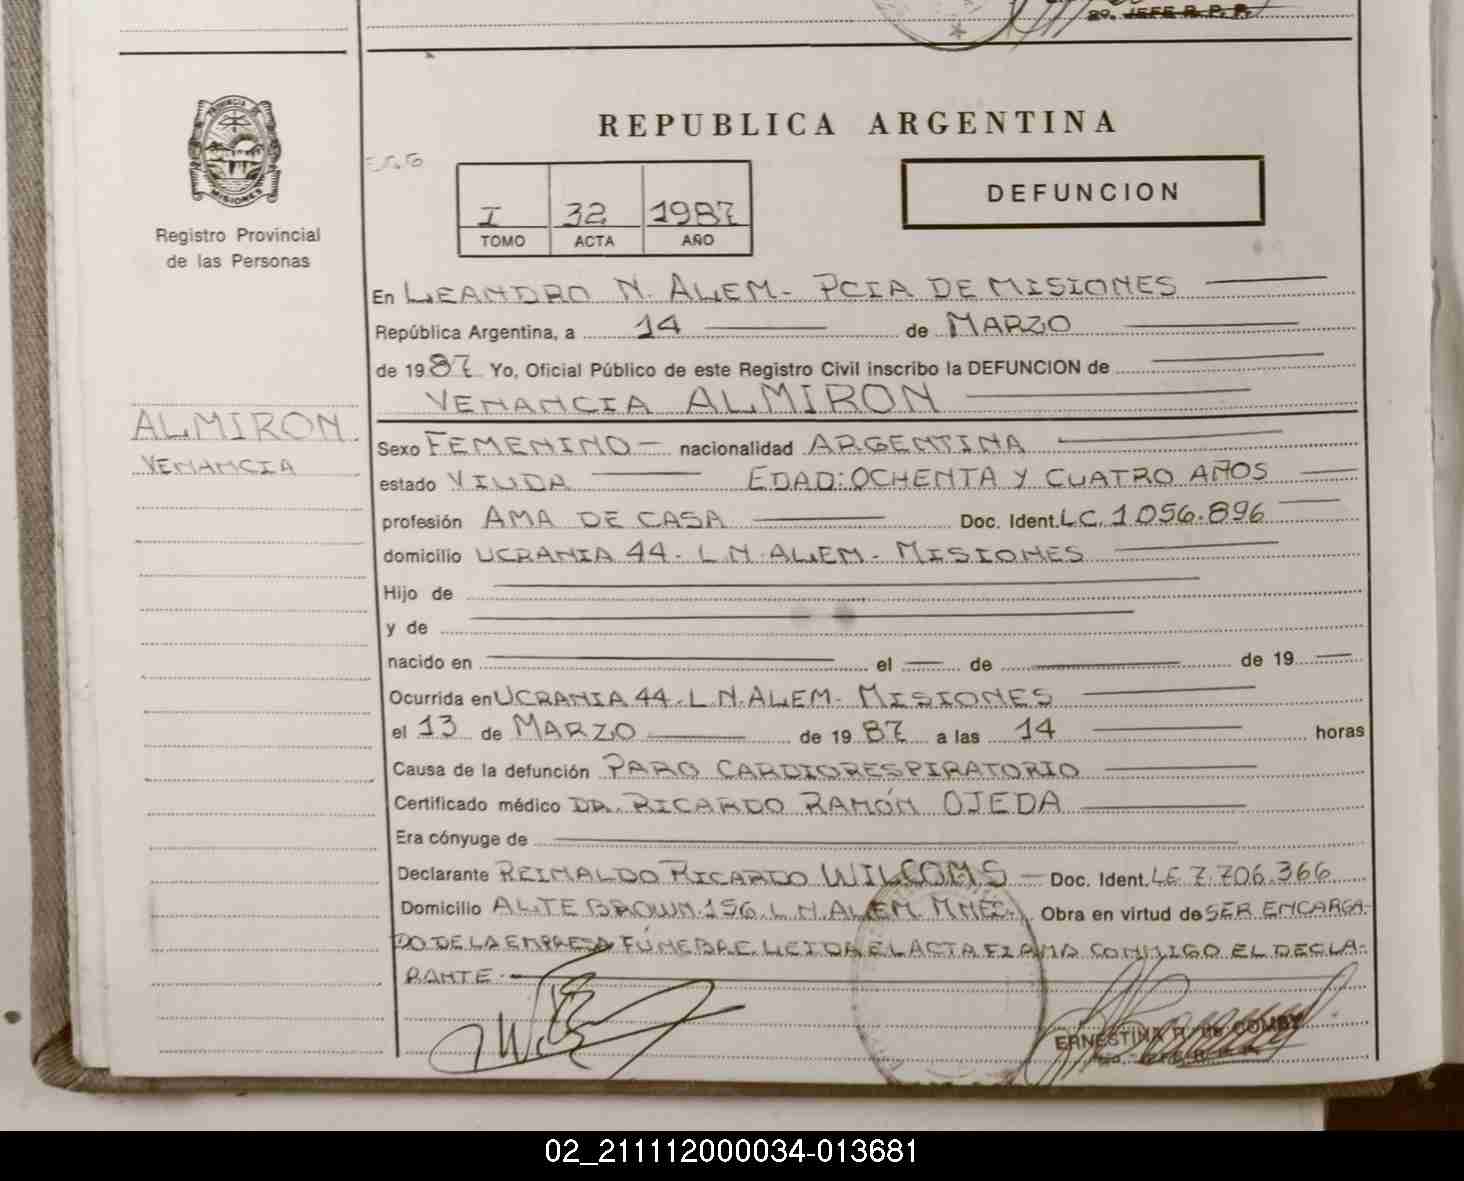 2o. JEFE R. P. P.
PROVINCIA DE
MISIONES
Registro Provincial
de las Personas
REPUBLICA ARGENTINA
I 32 1987
TOMO ACTA AÑO
DEFUNCION
En LEANDRO N. ALEM - PCIA DE MISIONES
República Argentina, a 14 de MARZO
de 1987 Yo, Oficial Público de este Registro Civil inscribo la DEFUNCION de
VENANCIA ALMIRON
ALMIRON
VENANCIA
Sexo FEMENINO - nacionalidad ARGENTINA
estado VIUDA EDAD: OCHENTA Y CUATRO AÑOS
profesión AMA DE CASA Doc. Ident. LC. 1.056.896
domicilio UCRANIA 44 - L.N. ALEM - MISIONES
Hijo de
y de
nacido en el de de 19
Ocurrida en UCRANIA 44 - L.N. ALEM - MISIONES
el 13 de MARZO de 1987 a las 14 horas
Causa de la defunción PARO CARDIORESPIRATORIO
Certificado médico DR. RICARDO RAMÓN OJEDA
Era cónyuge de
Declarante REINALDO RICARDO WILCOMS - Doc. Ident. LE 7.706.366
Domicilio ALTE BROWN 156. L.N. ALEM. MNES. Obra en virtud de SER ENCARGA-
DO DE LA EMPRESA FÚNEBRE. LEIDA EL ACTA FIRMA CONMIGO EL DECLA-
RANTE
ERNESTINA R. DE COMBY
2o. JEFE R. P. P.
02_211112000034-013681